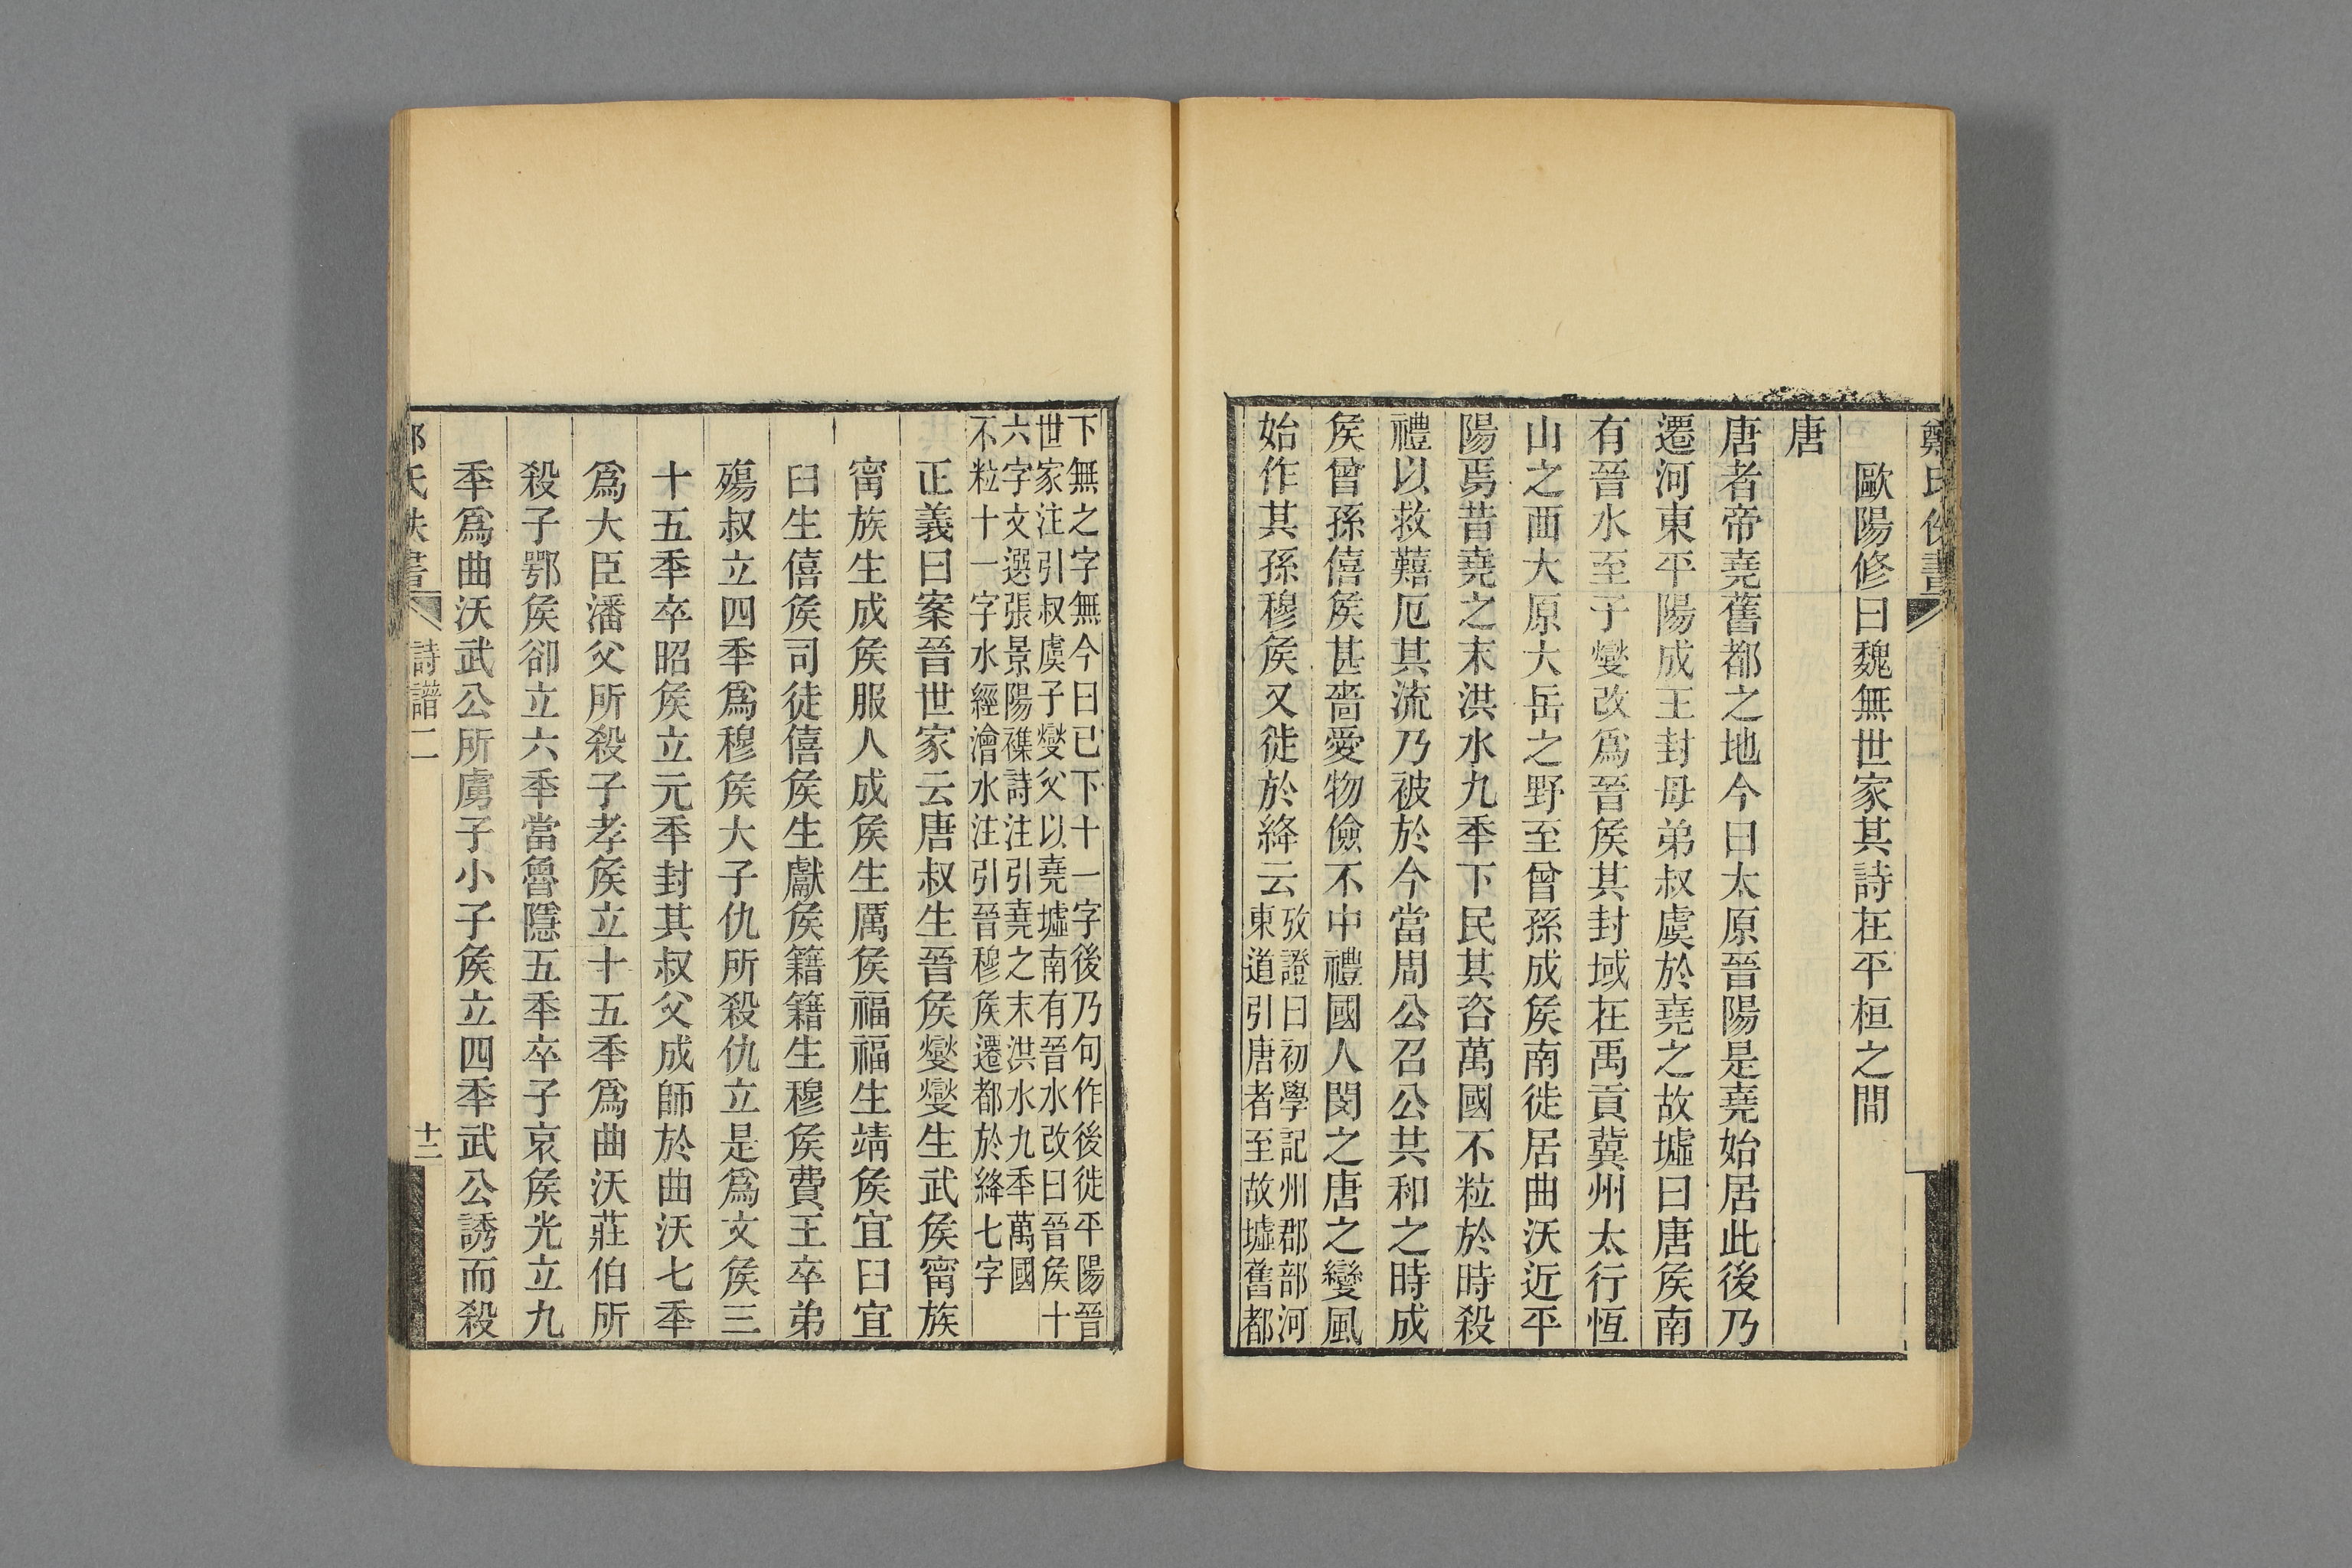 歐陽修曰魏無世家其詩在平桓之閒
唐
唐者帝堯舊都之地今曰太原晉陽是堯始居此後乃
遷河東平陽成王封母弟叔虞於堯之故墟曰唐矦南
有晉水至子燮改爲晉矦其封域在禹貢冀州太行恆
山之西大原大岳之野至曾孫成矦南徙居曲沃近平
陽焉昔堯之末洪水九秊下民其咨萬國不粒於時殺
禮以救囏厄其流乃被於今當周公召公共和之時成
矦曾孫僖矦甚嗇愛物儉不中禮國人閔之唐之變風
始作其孫穆矦又徙於絳云
攷證曰初學記州郡部河
東道引唐者至故墟舊都
下無之字無今曰已下十一字後乃句作後徙平陽晉
世家注引叔虞子燮父以堯墟南有晉水改曰晉矦十
六字文選張景陽襍詩注引堯之末洪水九秊萬國
不粒十一字水經澮水注引晉穆矦遷都於絳七字
正義曰案晉世家云唐叔生晉矦燮燮生武矦甯族
甯族生成矦服人成矦生厲矦福福生靖矦宜臼宜
臼生僖矦司徒僖矦生獻矦籍籍生穆矦費王卒弟
殤叔立四秊爲穆矦大子仇所殺仇立是爲文矦三
十五秊卒昭矦立元秊封其叔父成師於曲沃七秊
爲大臣潘父所殺子孝矦立十五秊爲曲沃莊伯所
殺子鄂矦卻立六秊當魯隱五秊卒子哀矦光立九
秊爲曲沃武公所虜子小子矦立四秊武公誘而殺
詩譜二
十二